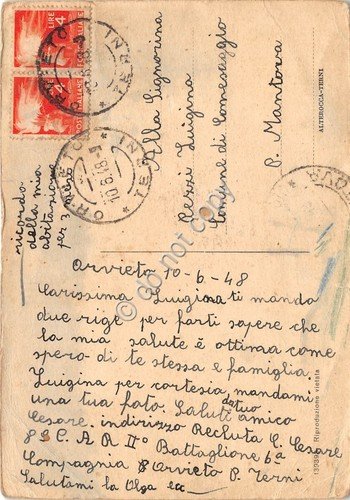 ricordo
della mia
abitazione
per 3 mesi
Alla Signorina
Luigina
Comune di Comesaggio
P. Mantova
ALTEROCCA-TERNI
Orvieto 10-6-48
Carissima Luigina ti mando
due rige per farti sapere che
la mia salute è ottima come
spero di te stessa e famiglia
Luigina per cortesia mandami
una tua foto. Saluti amico
dal tuo
Cesare. indirizzo Recluta C. Cesare
8º C.A.R IIº Battaglione 6ª
Compagnia Orvieto P. Terni
Salutami la Olga ecc
Riproduzione vietata
ORVIETO
10.6.48
POSTE ITALIANE
L.4
L.4
do not copy